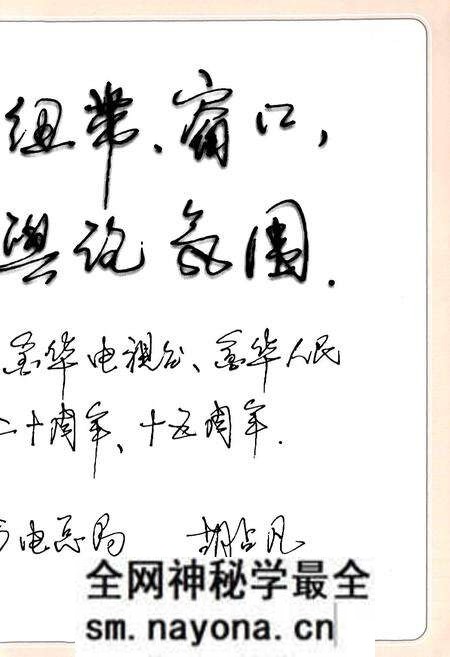 纽带、窗口，
舆论氛围.
金华电视台、金华人民
二十周年、十五周年.
电总局 胡占凡
全网神秘学最全
sm.nayona.cn